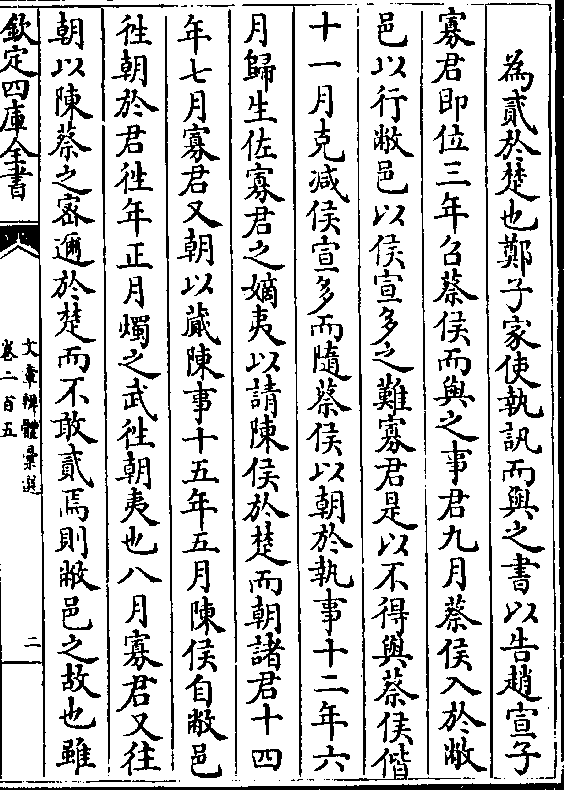 為貳於楚也鄭子家使執訊而與之書以告趙宣子
寡君即位三年召蔡侯而與之事君九月蔡侯入於敝
邑以行敝邑以侯宣多之難寡君是以不得與蔡侯偕
十一月克减侯宣多而隨蔡侯以朝於執事十二年六
月歸生佐寡君之嫡夷以請陳侯於楚而朝諸君十四
年七月寡君又朝以蕆陳事十五年五月陳侯自敝邑
徃朝於君徃年正月燭之武徃朝夷也八月寡君又往
朝以陳蔡之宻邇於楚而不敢貳焉則敝邑之故也雖
欽定四庫全書
文章辨體彚選
卷二百五
二